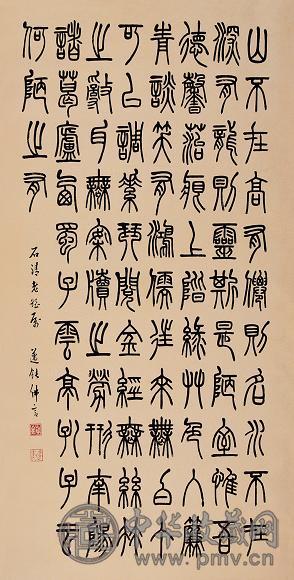 山不在高有僊則名水不在
深有龍則靈斯是陋室惟吾
德馨菭痕上階綠艸色入簾
青談笑有鴻儒往來無白丁
可以調素琴閱金經無絲竹
之亂耳無案牘之勞形南陽
諸葛廬西蜀子雲亭孔子云
何陋之有
石清老姪屬
仲言
中华收藏网
www.pmv.cn